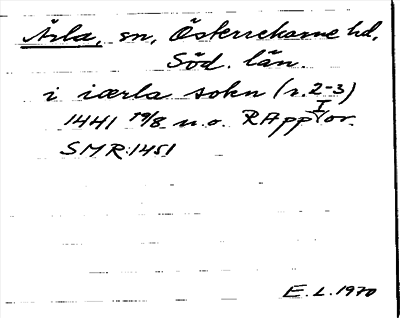 Ärla, sn, Österrekarne hd,
Söd. län.
i iærla sokn (r. 2-3)
1441 19/8 u.o. RApp I or.
SMR 1451
E.L. 1970